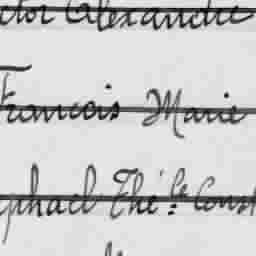 ctor Alexandre
François Marie
phael Thé. Const